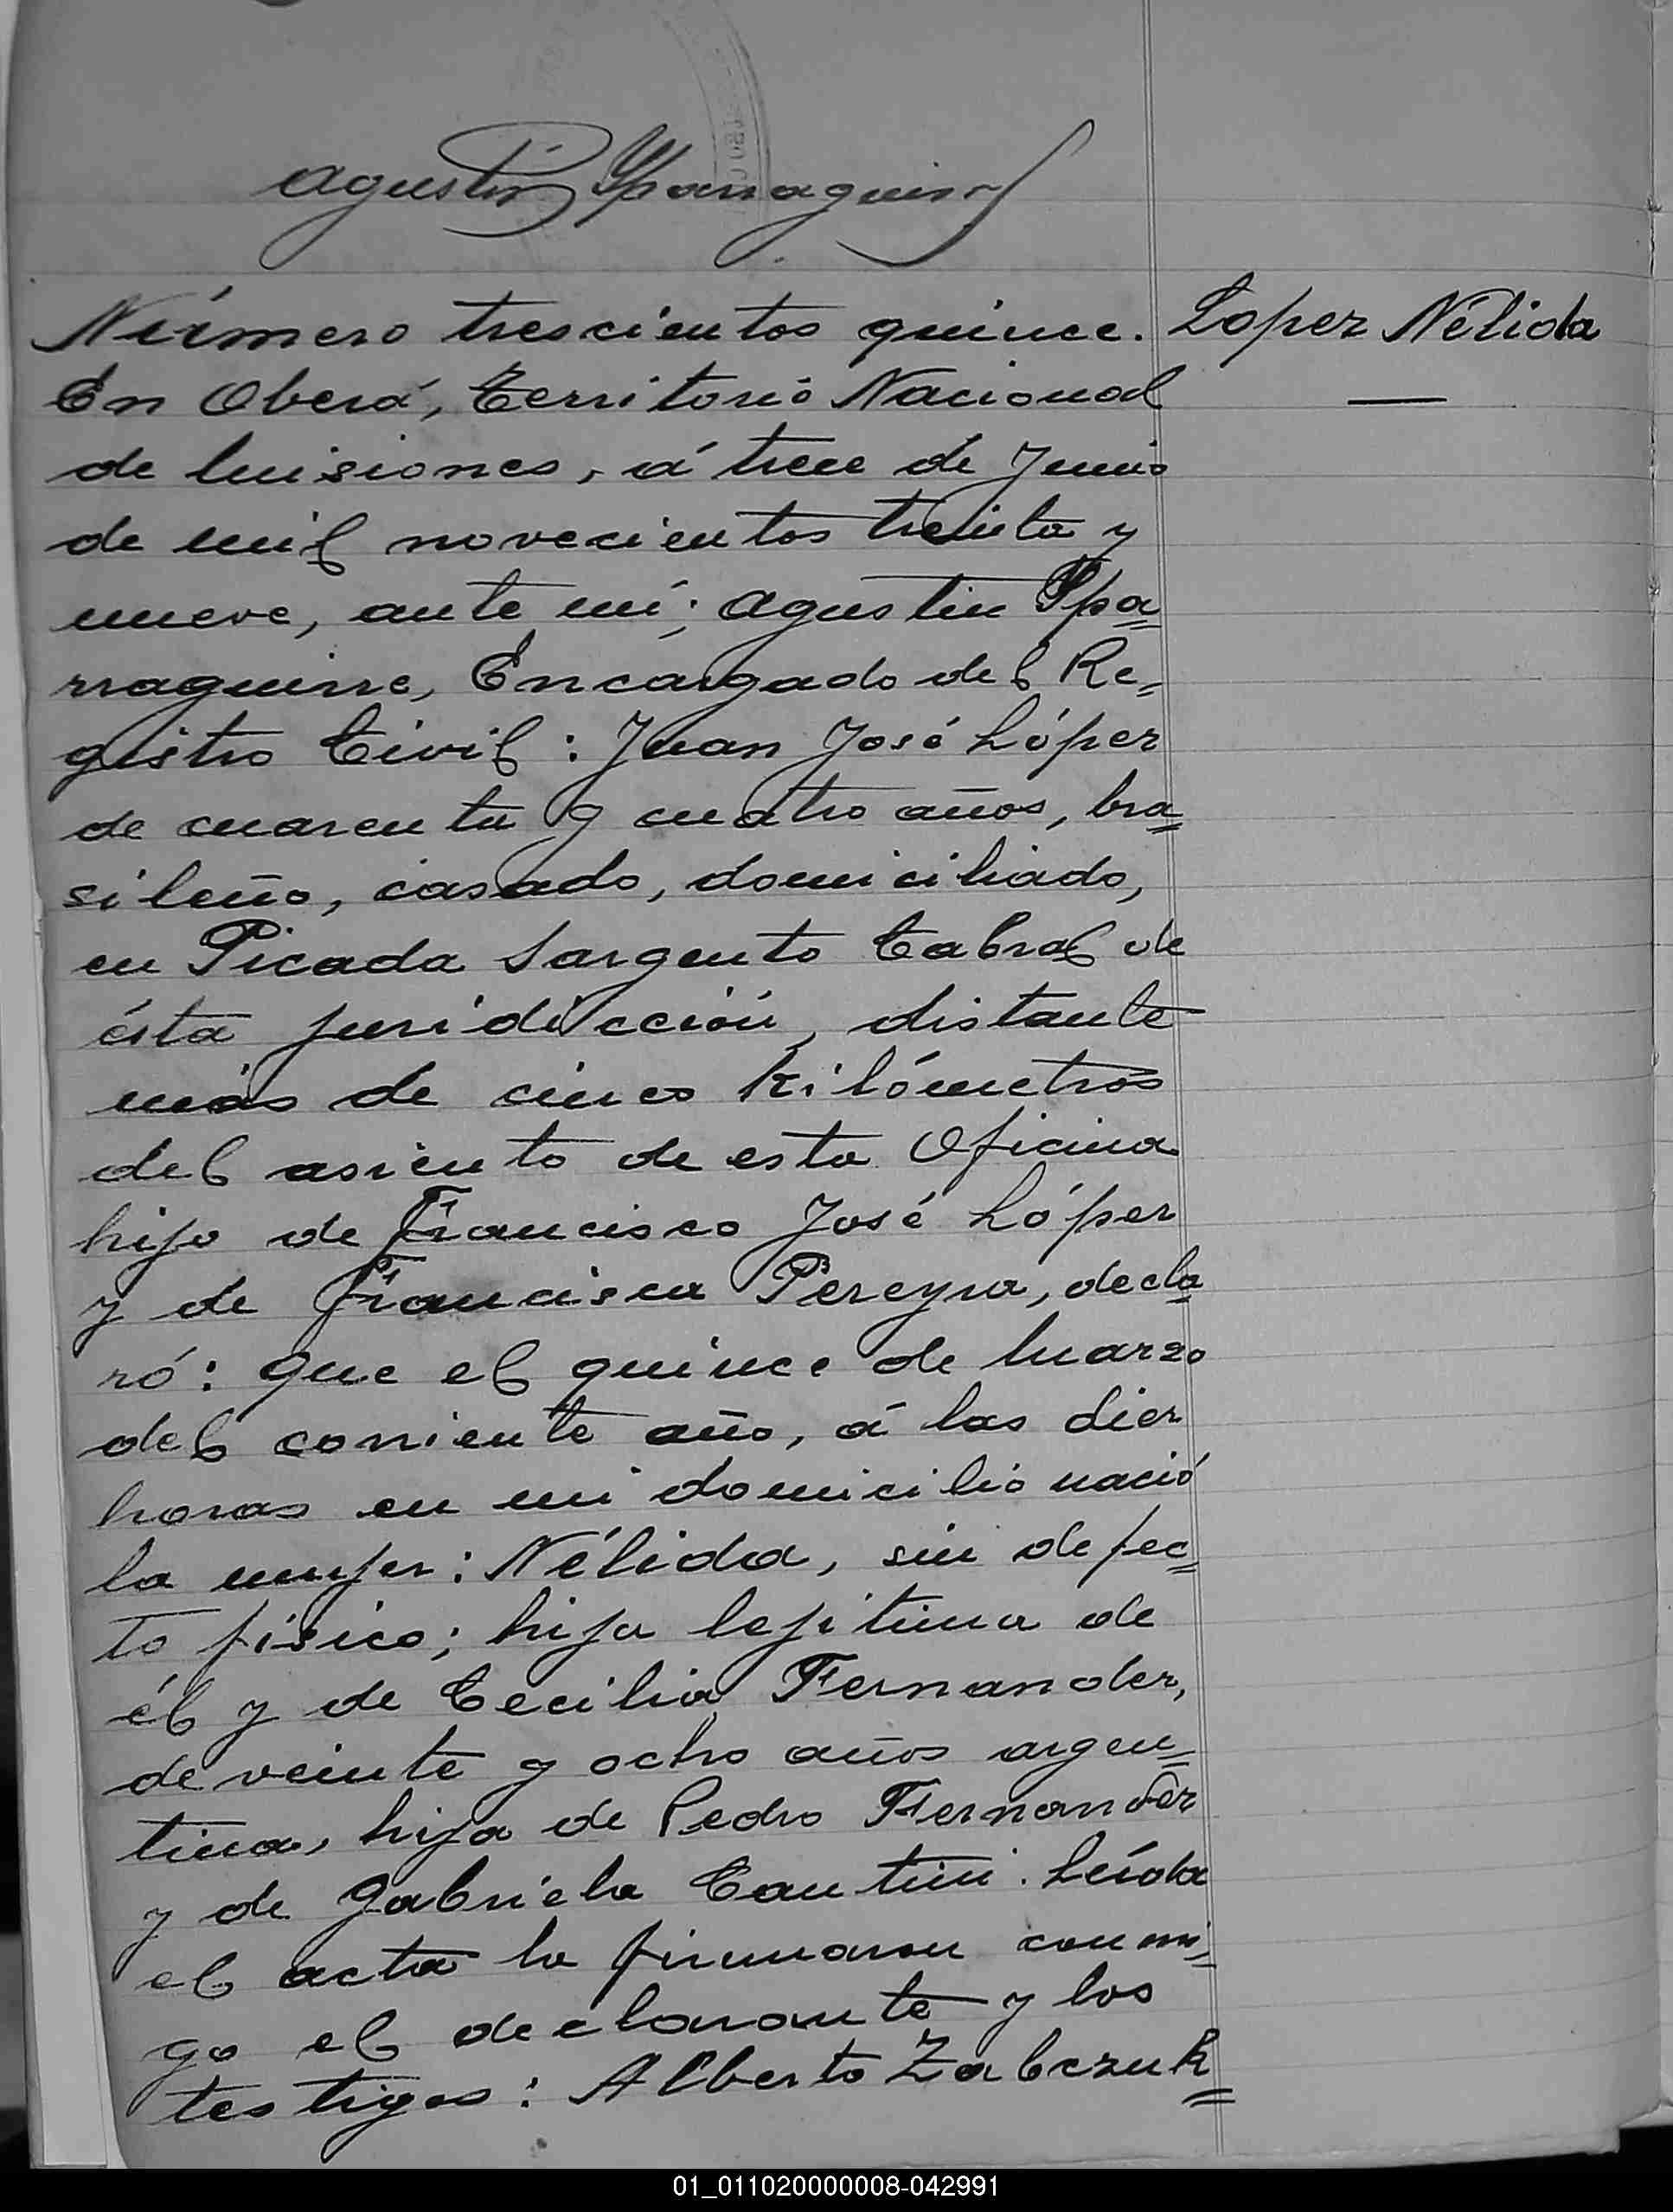 Agustín Yparraguirre
Número trescientos quince.
Lopez Nélida
En Oberá, Territorio Nacional
de Misiones, á trece de Junio
de mil novecientos treinta y
nueve, ante mí; Agustin Ypa=
rraguirre, Encargado del Re=
gistro Civil: Juan José López
de cuarenta y cuatro años, bra=
sileño, casado, domiciliado,
en Picada Sargento Cabral de
ésta juridicción, distante
más de cinco Kilómetros
del asiento de esta Oficina
hijo de Francisco José López
y de Francisca Pereyra, decla=
ró: Que el quince de Marzo
del corriente año, á las diez
horas en mi domicilio nació
la mujer: Nélida, sin defec=
to físico; hija lejitima de
él y de Cecilia Fernandez,
de veinte y ocho años argen=
tina, hija de Pedro Fernandez
y de Gabriela Cantini. Leída
el acta la firmaron conmi=
go el declarante y los
testigos: Alberto Zabczuk=
01_011020000008-042991